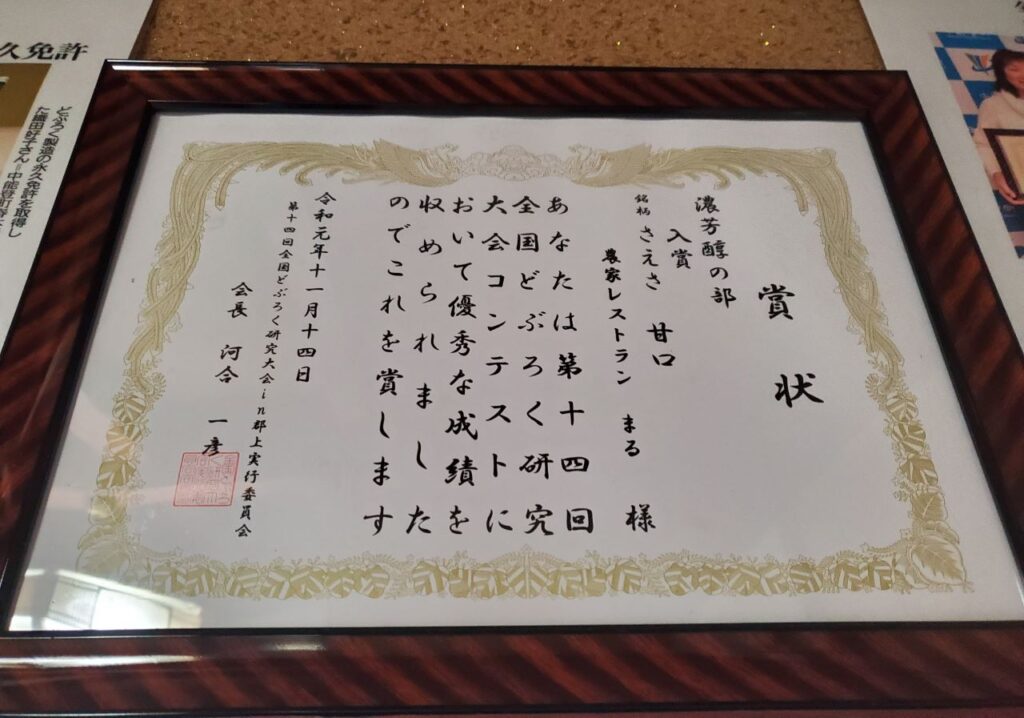 賞状
濃芳醇の部
入賞
銘柄 さえさ 甘口
農家レストラン まる 様
あなたは第十四回
全国どぶろく研究
大会コンテストに
おいて優秀な成績を
収められました
のでこれを賞します
令和元年十一月十四日
第十四回全国どぶろく研究大会in郡上実行委員会
会長 河合 一彦
久免許
どぶろく製造の永久免許を取得し
た織田好子さん=中能登町